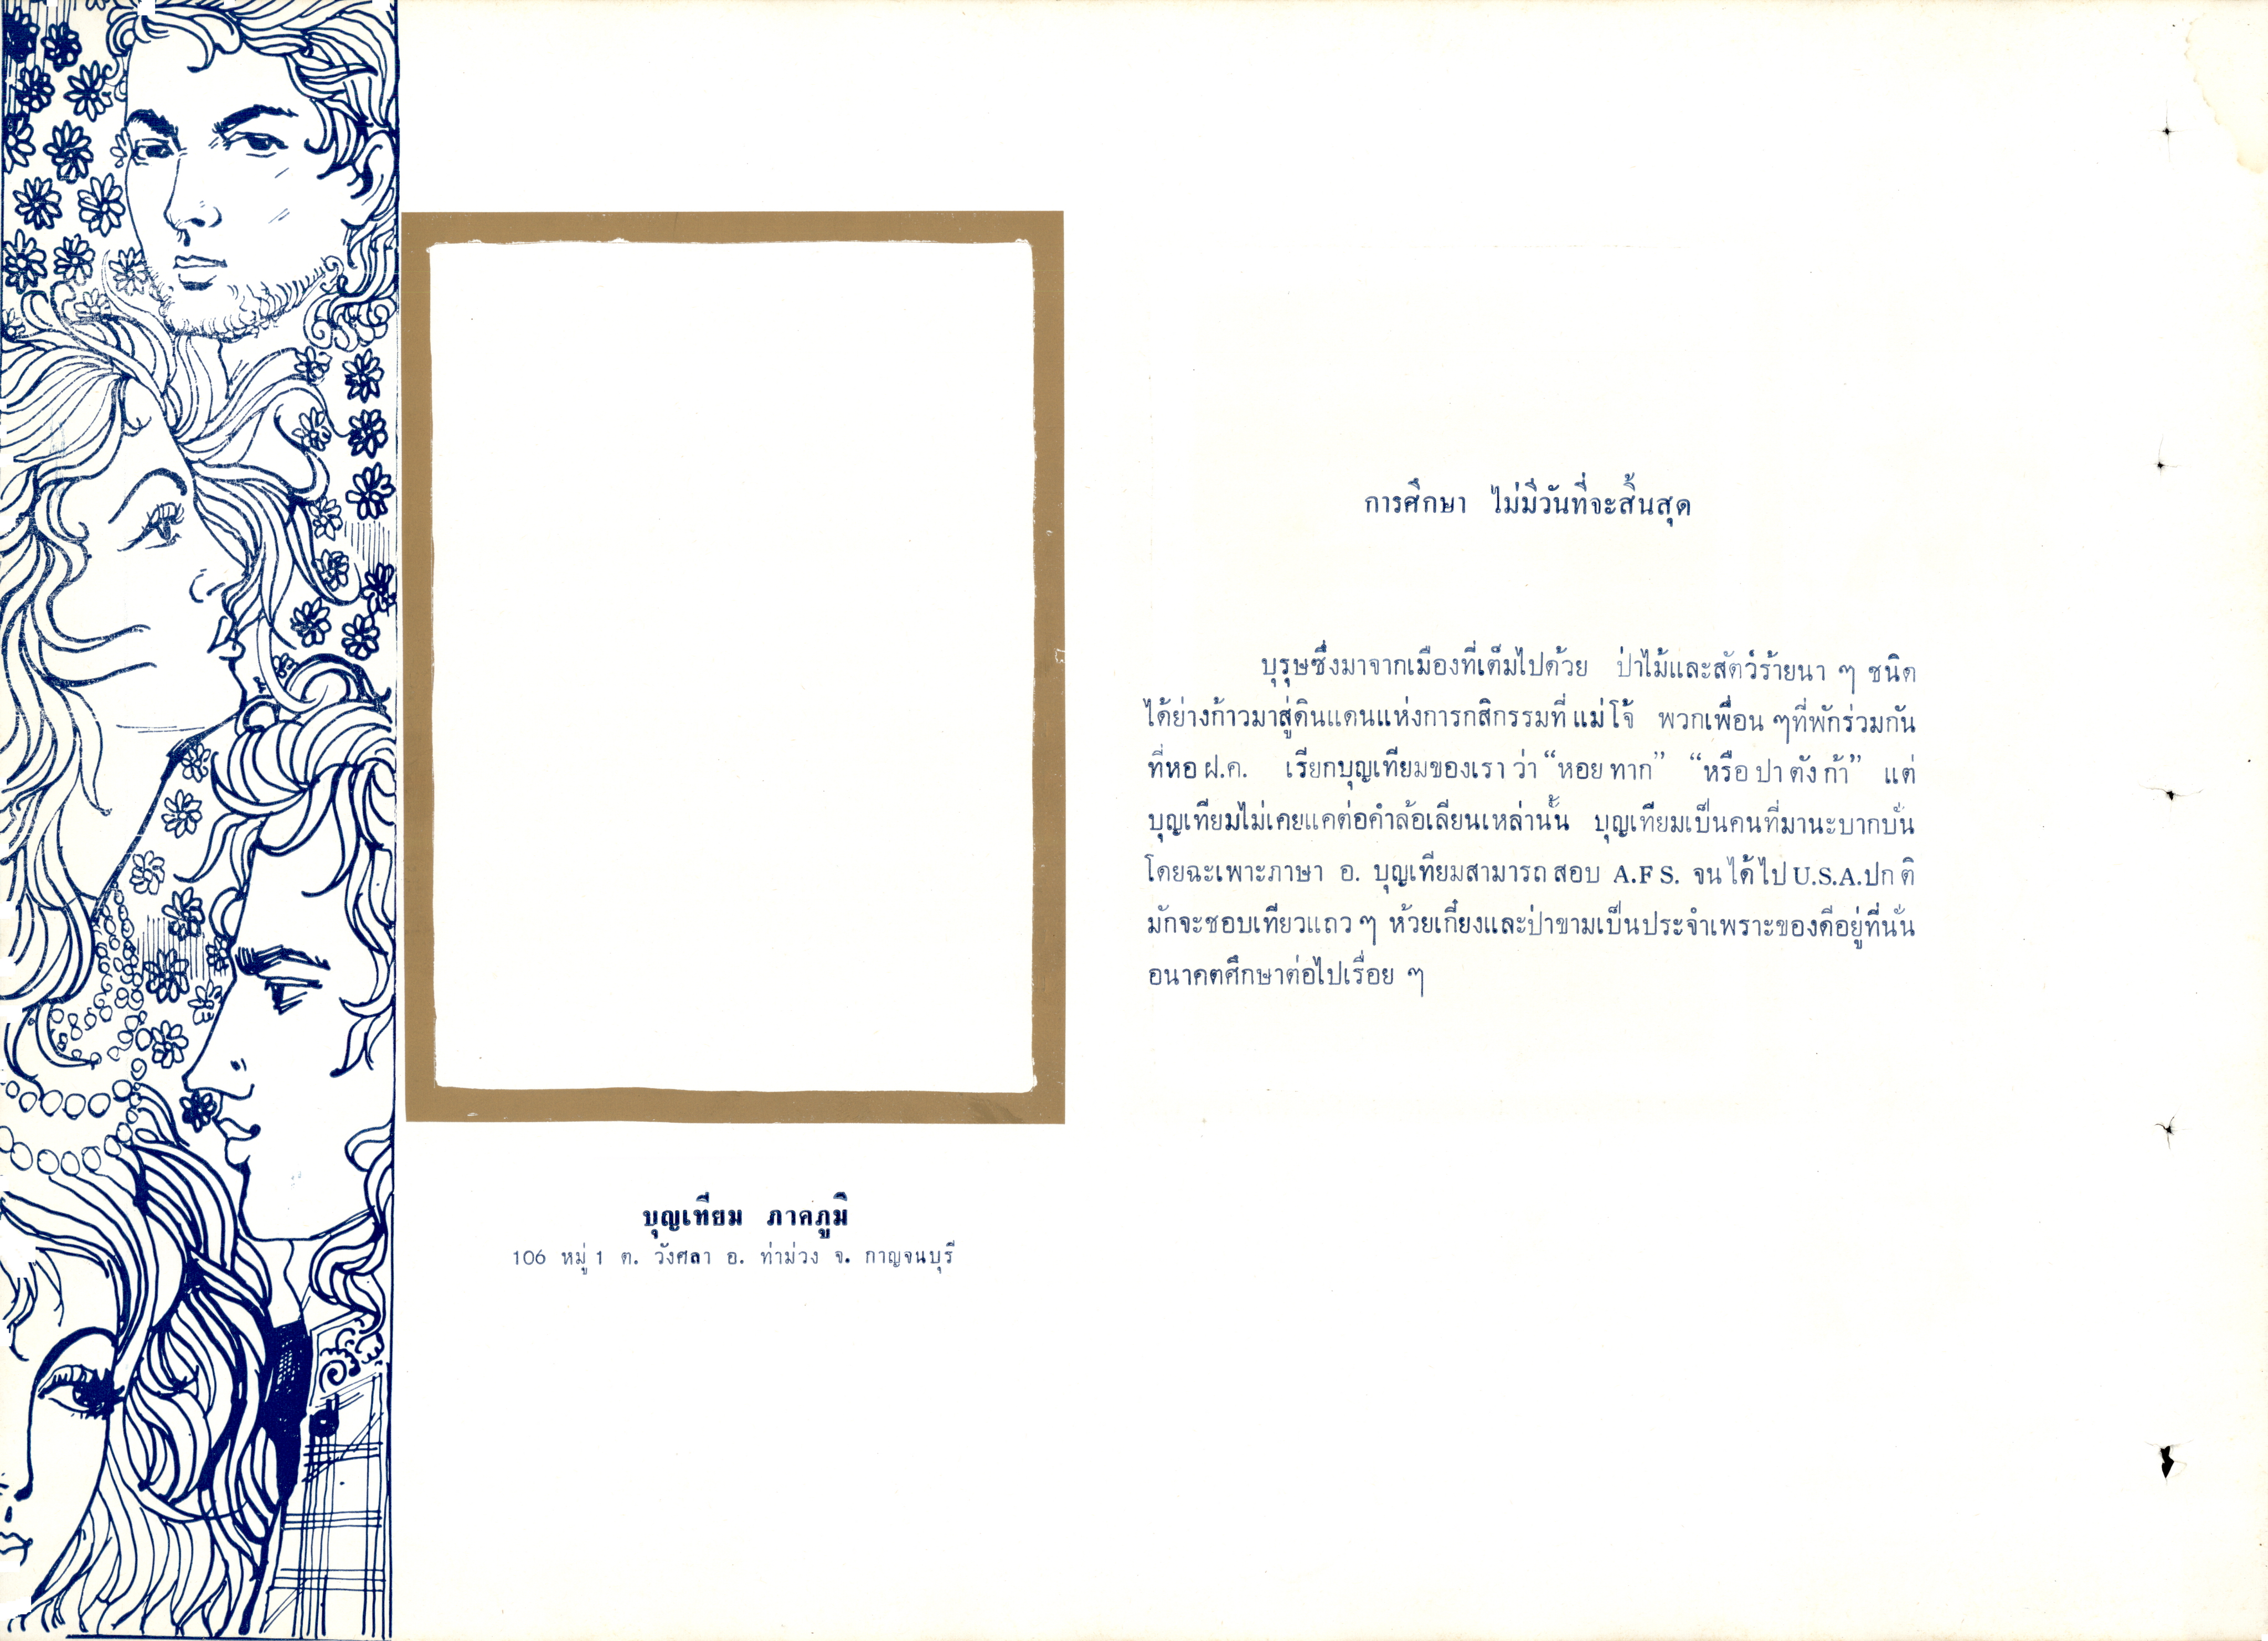 การศึกษา ไม่มีวันที่จะสิ้นสุด
บุรุษซึ่งมาจากเมืองที่เต็มไปด้วย ป่าไม้และสัตว์ร้ายนา ๆ ชนิด
ได้ย่างก้าวมาสู่ดินแดนแห่งการกสิกรรมที่ แม่โจ้ พวกเพื่อน ๆที่พักร่วมกัน
ที่หอ ฝ.ค. เรียกบุญเทียมของเรา ว่า “หอย ทาก” “หรือ ปา ตัง ก้า” แต่
บุญเทียมไม่เคยแคต่อคำล้อเลียนเหล่านั้น บุญเทียมเป็นคนที่มานะบากบั่น
โดยฉะเพาะภาษา อ. บุญเทียมสามารถ สอบ A.F S. จน ได้ ไป U.S.A.ปก ติ
มักจะชอบเที่ยวแถว ๆ ห้วยเกี๋ยงและป่าขามเป็นประจำเพราะของดีอยู่ที่นั่น
อนาคตศึกษาต่อไปเรื่อย ๆ
บุญเทียม ภาคภูมิ
106 หมู่ 1 ต. วังศลา อ. ท่าม่วง จ. กาญจนบุรี